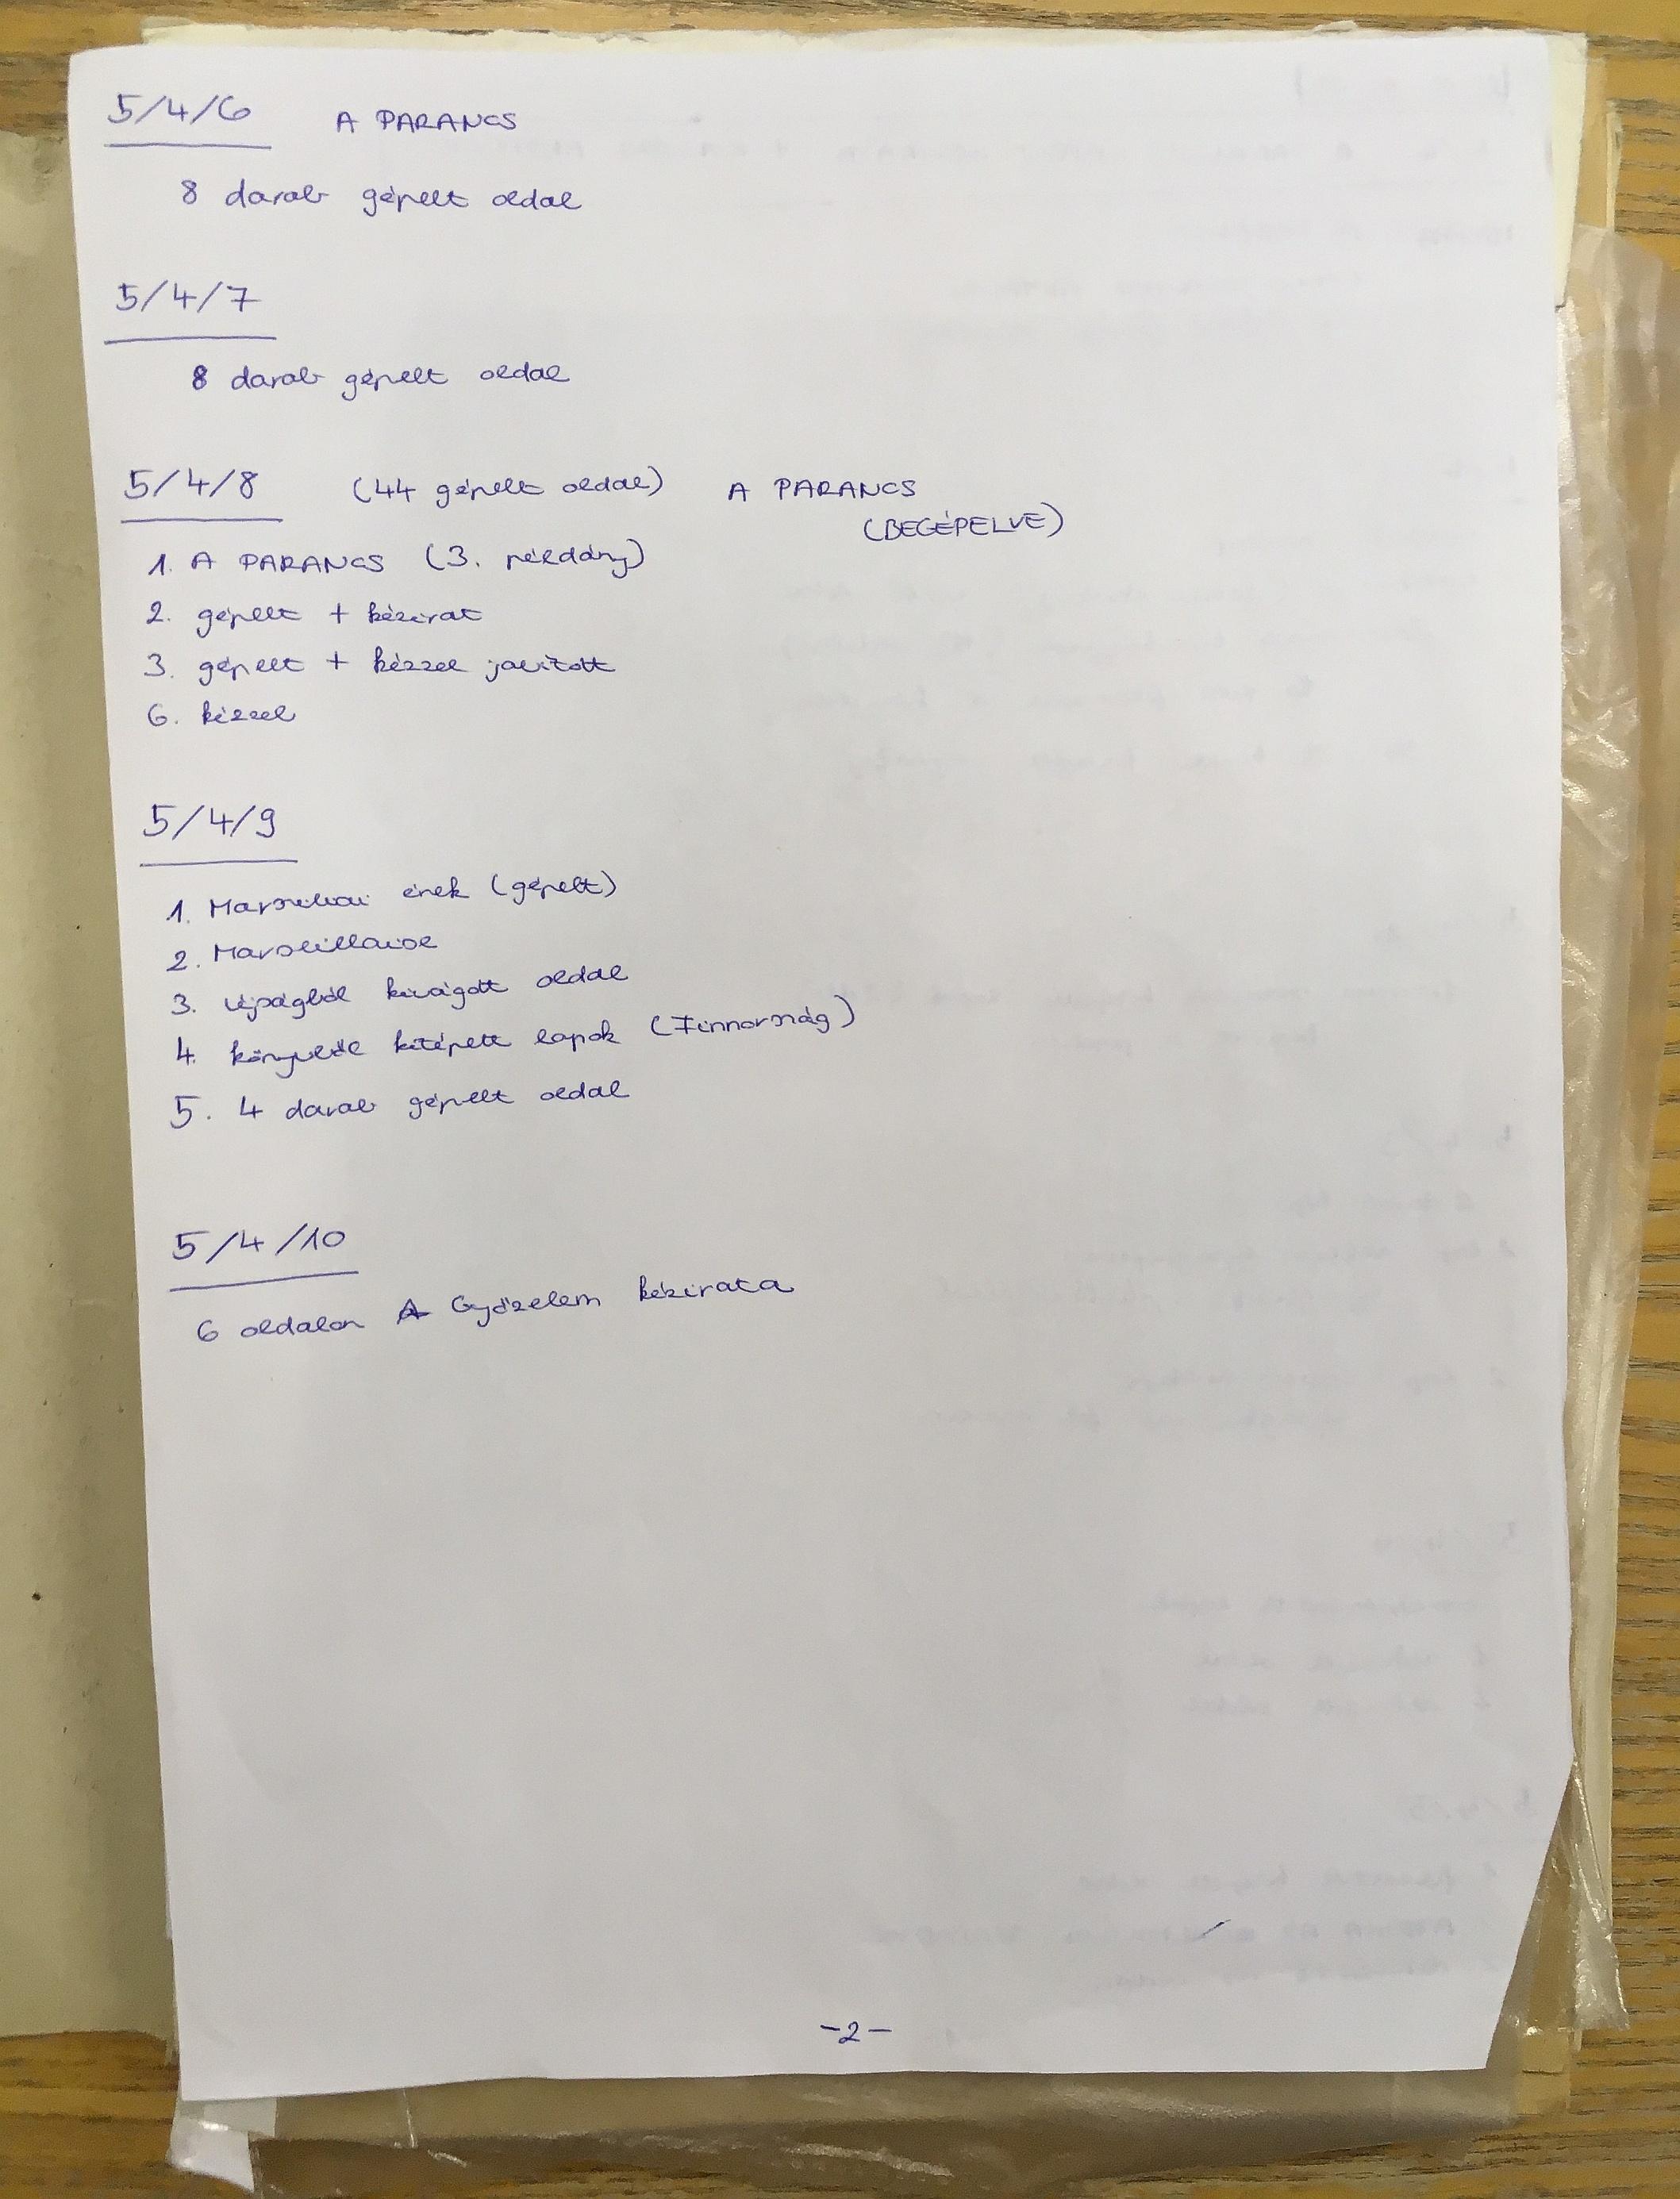 5/4/6 A PARANCS
8 darab gépelt oldal
5/4/7
8 darab gépelt oldal
5/4/8 (44 gépelt oldal) A PARANCS
(BEGÉPELVE)
1. A PARANCS (3. példány)
2. gépelt + kézirat
3. gépelt + kézzel javított
6. kézzel
5/4/9
1. Marseillai ének (gépelt)
2. Marseillaise
3. újságból kivágott oldal
4. könyvből kitépett lapok (Finnország)
5. 4 darab gépelt oldal
5/4/10
6 oldalon A Győzelem kézirata
-2-